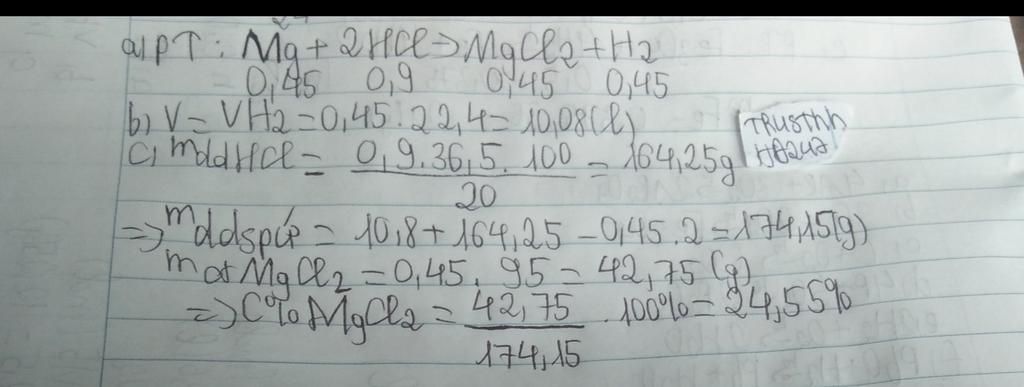 a, pT: Mg + 2HCl => MgCl2 + H2
0,45 0,9 0,45 0,45
b, V = VH2 = 0,45.22,4 = 10,08(l)
c, mddHCl = 0,9.36,5.100 = 164,25g
20
TRUSThh
HB247
=> mddspứ = 10,8 + 164,25 - 0,45.2 = 174,15(g)
mct MgCl2 = 0,45. 95 = 42,75 (g)
=> C% MgCl2 = 42,75 . 100% = 24,55%
174,15